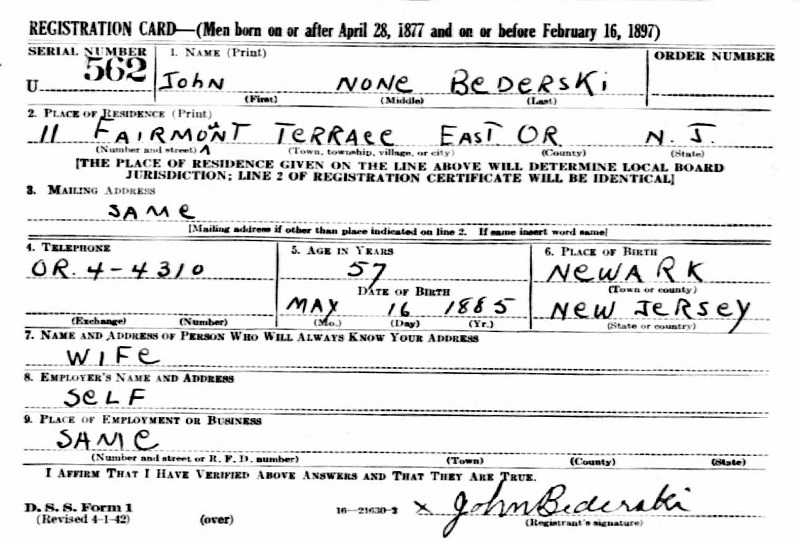 REGISTRATION CARD—(Men born on or after April 28, 1877 and on or before February 16, 1897)
SERIAL NUMBER 1. NAME (Print) ORDER NUMBER
U 562 JOHN NONE BEDERSKI
(First) (Middle) (Last)
2. PLACE OF RESIDENCE (Print)
11 FAIRMONT TERRACE EAST OR N. J.
(Number and street) (Town, township, village, or city) (County) (State)
[THE PLACE OF RESIDENCE GIVEN ON THE LINE ABOVE WILL DETERMINE LOCAL BOARD
JURISDICTION; LINE 2 OF REGISTRATION CERTIFICATE WILL BE IDENTICAL]
3. MAILING ADDRESS
SAME
[Mailing address if other than place indicated on line 2. If same insert word same]
4. TELEPHONE 5. AGE IN YEARS 6. PLACE OF BIRTH
OR. 4-4310 57 NEWARK
DATE OF BIRTH (Town or county)
MAY 16 1885 NEW JERSEY
(Exchange) (Number) (Mo.) (Day) (Yr.) (State or country)
7. NAME AND ADDRESS OF PERSON WHO WILL ALWAYS KNOW YOUR ADDRESS
WIFE
8. EMPLOYER'S NAME AND ADDRESS
SELF
9. PLACE OF EMPLOYMENT OR BUSINESS
SAME
(Number and street or R. F. D. number) (Town) (County) (State)
I AFFIRM THAT I HAVE VERIFIED ABOVE ANSWERS AND THAT THEY ARE TRUE.
D. S. S. Form 1
(Revised 4-1-42) (over) 16—21630-2 X John Bederski
(Registrant's signature)